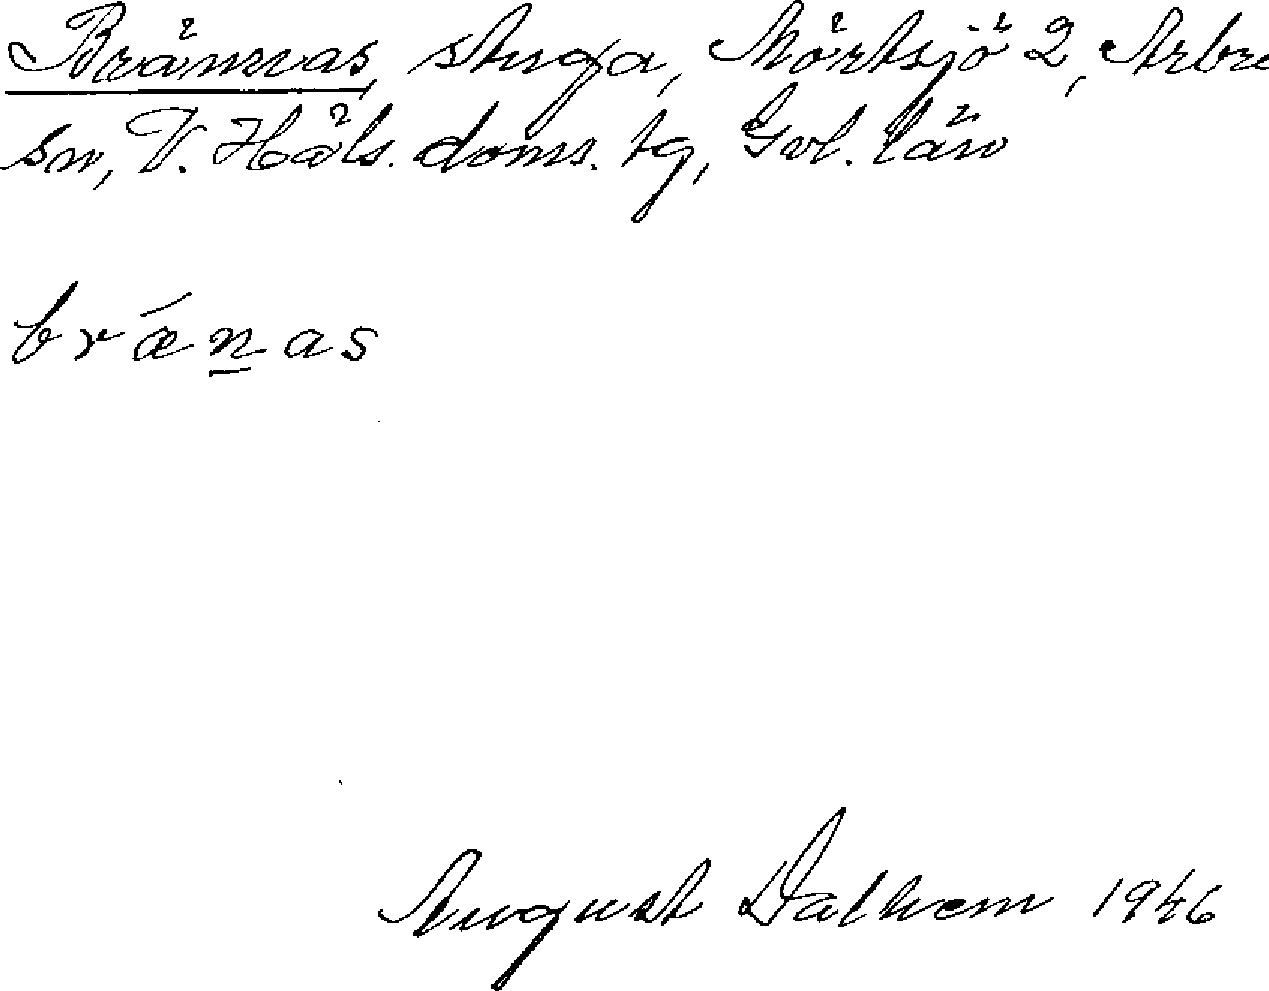 Brännas, stuga, Mörtsjö 2, Arbrå
sn, V. Häls. doms. tg, Gvl. län
brǽn̲as
August Dalhem 1946